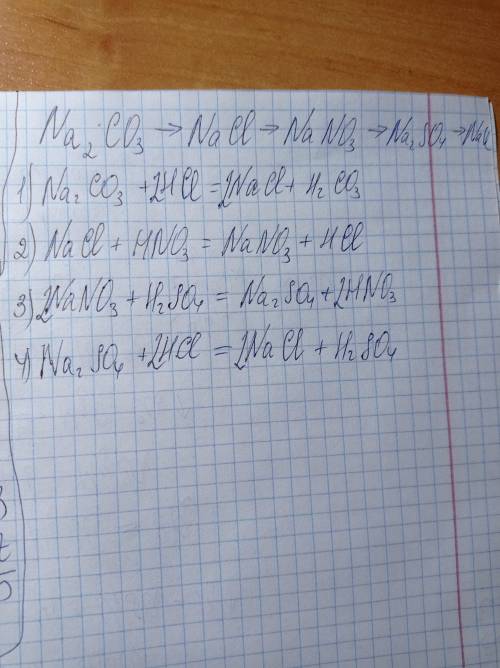 Na₂CO₃ → NaCl → NaNO₃ → Na₂SO₄ → NaCl
1) Na₂CO₃ + 2HCl = 2NaCl + H₂CO₃
2) NaCl + HNO₃ = NaNO₃ + HCl
3) 2NaNO₃ + H₂SO₄ = Na₂SO₄ + 2HNO₃
4) Na₂SO₄ + 2HCl = 2NaCl + H₂SO₄